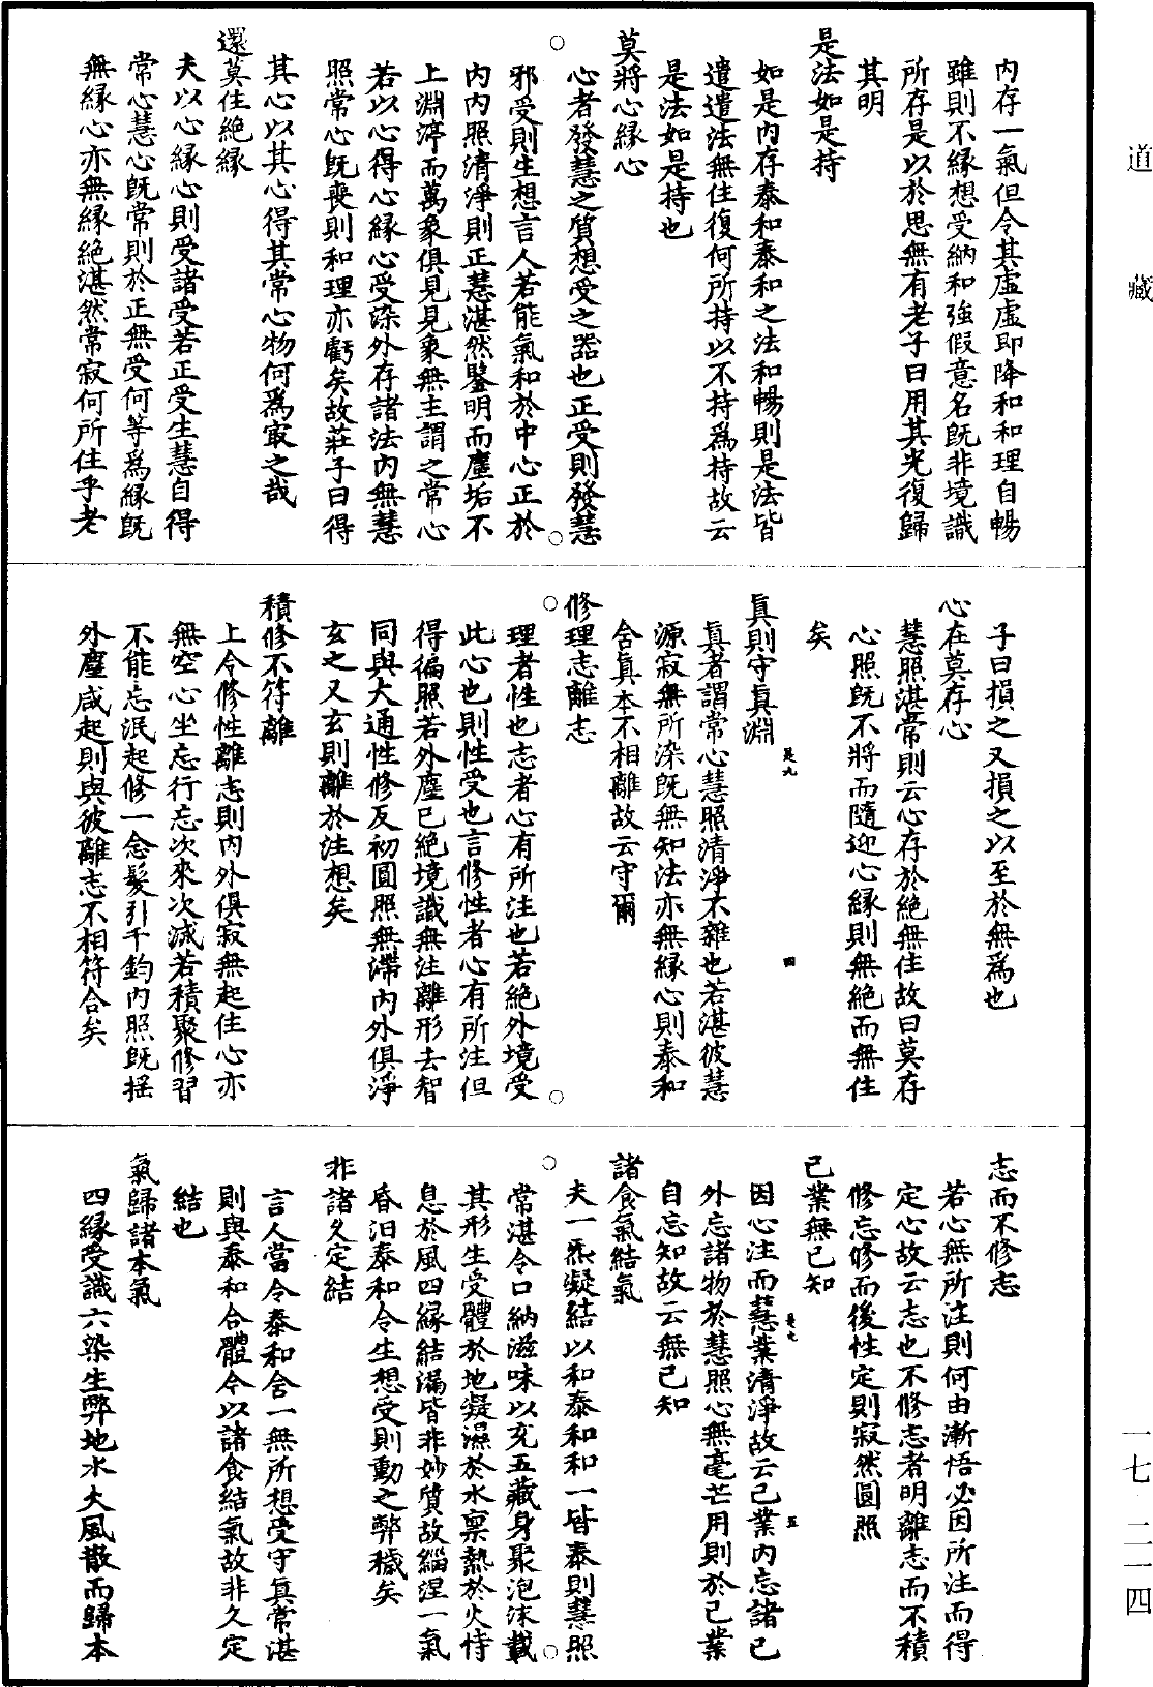 道藏
內存一氣但令其虛虛即降和和理自暢
雖則不緣想受納和強假意名既非境識
所存是以於思無有老子曰用其光復歸
其明
是法如是持
如是內存泰和泰和之法和暢則是法皆
遣遣法無住復何所持以不持爲持故云
是法如是持也
莫將心緣心
心者發慧之質想受之器也正受則發慧
邪受則生想言人若能氣和於中心正於
內內照清淨則正慧湛然鑒明而塵垢不
上淵渟而萬象俱見見象無主謂之常心
若以心得心緣心受染外存諸法內無慧
照常心既喪則和理亦虧矣故莊子曰得
其心以其心得其常心物何爲㝡之哉
還莫住絶緣
夫以心緣心則受諸受若正受生慧自得
常心慧心既常則於正無受何等爲緣既
無緣心亦無緣絶湛然常寂何所住乎老
子曰損之又損之以至於無爲也
心在莫存心
慧照湛常則云心存於絶無住故曰莫存
心照既不將而隨迎心緣則無絶而無住
矣
眞則守眞淵
眞者謂常心慧照清淨不雜也若湛彼慧
源寂無所染既無知法亦無緣心則泰和
含眞本不相離故云守爾
修理志離志
理者性也志者心有所注也若絶外境受
此心也則性受也言修性者心有所注但
得徧照若外塵已絶境識無注離形去智
同與大通性修反初圓照無滯內外俱淨
玄之又玄則離於注想矣
積修不符離
上令修性離志則內外俱寂無起住心亦
無空心坐忘行忘次來次滅若積聚修習
不能忘泯起修一念髮引千鈞內照既搖
外塵咸起則與彼離志不相符合矣
志而不修志
若心無所注則何由漸悟必因所注而得
定心故云志也不修志者明離志而不積
修忘修而後性定則寂然圓照
己業無己知
因心注而慧業清淨故云己業內忘諸己
外忘諸物於慧照心無毫芒用則於己業
自忘知故云無己知
諸食氣結氣
夫一炁凝結以和泰和和一皆泰則慧照
常湛令口納滋味以充五藏身聚泡沫載
其形生受體於地凝濕於水稟熱於火恃
息於風四緣結漏皆非妙質故緇涅一氣
昏汩泰和令生想受則動之弊穢矣
非諸久定結
言人當令泰和含一無所想受守眞常湛
則與泰和合體今以諸食結氣故非久定
結也
氣歸諸本氣
四緣受識六染生弊地水火風散而歸本
一七 二一四